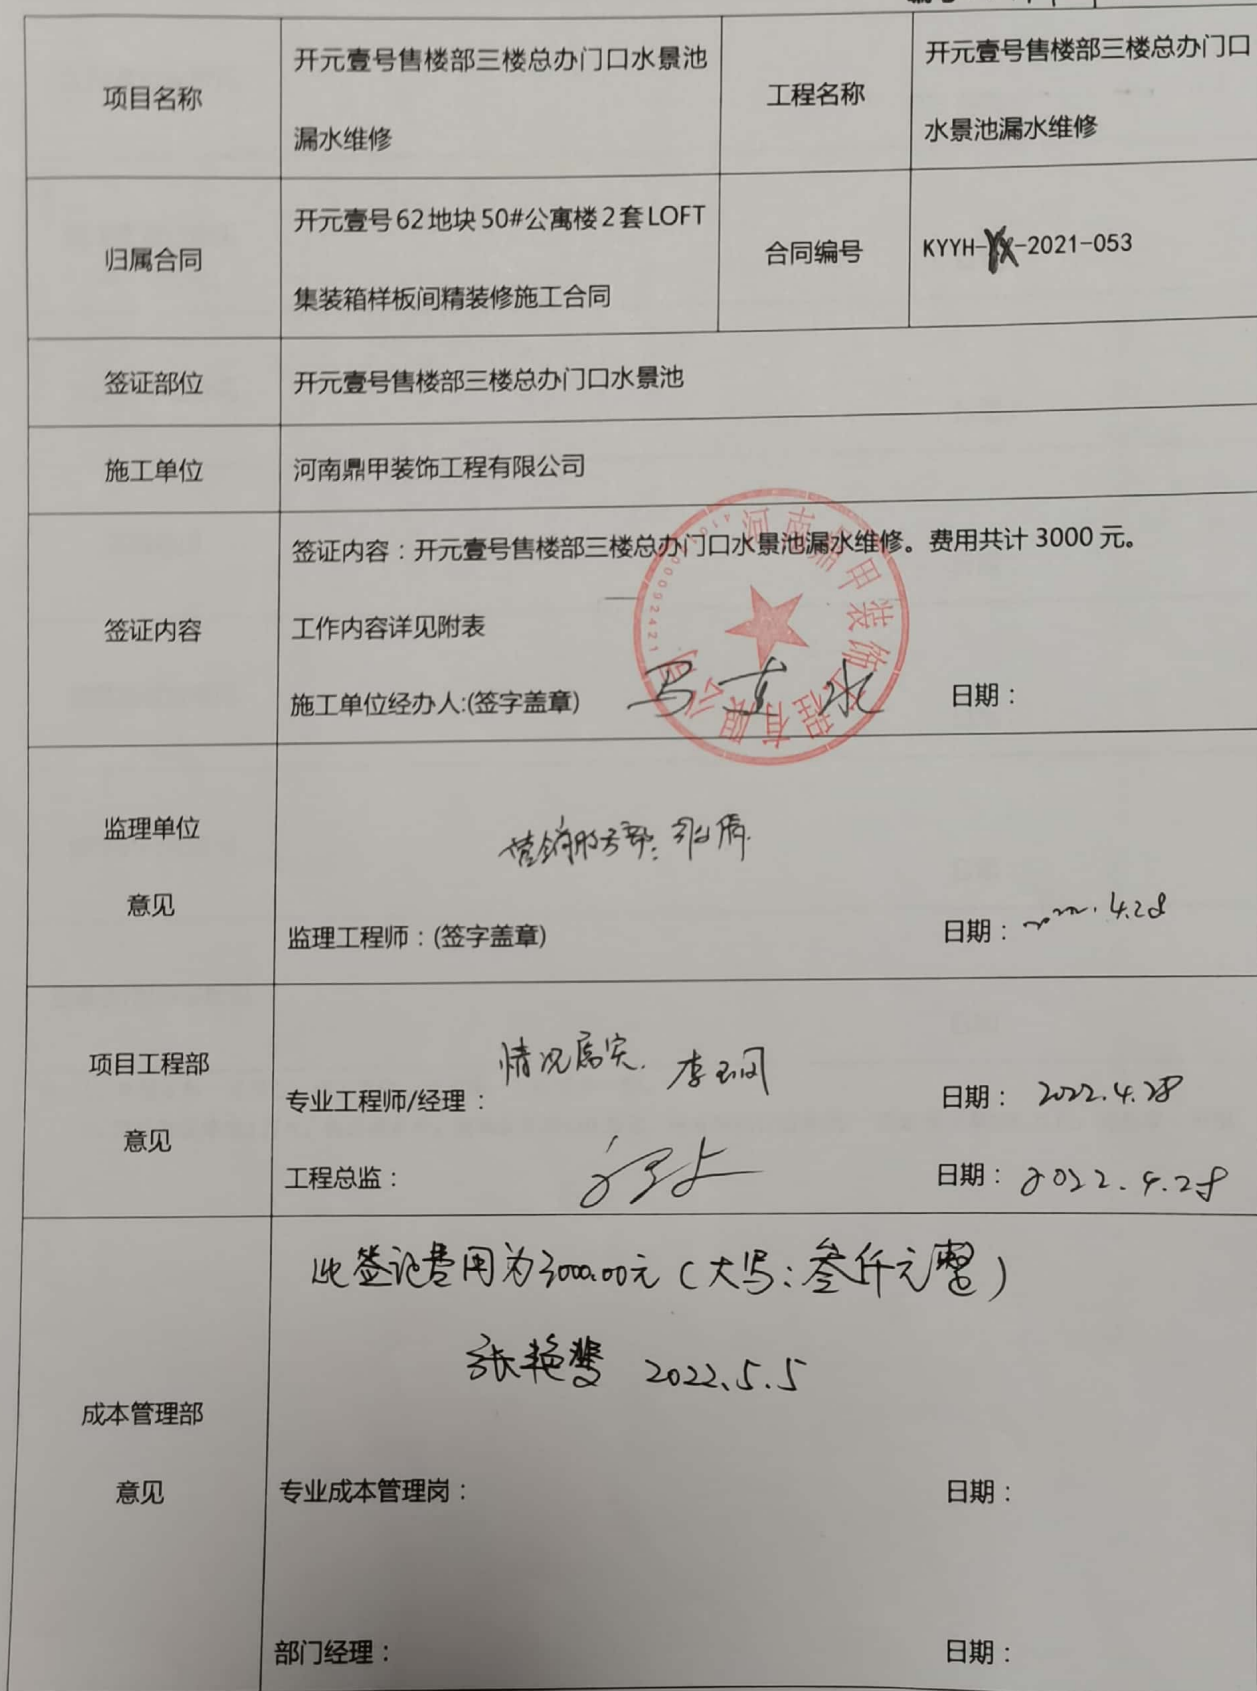 项目名称
开元壹号售楼部三楼总办门口水景池
漏水维修
工程名称
开元壹号售楼部三楼总办门口
水景池漏水维修
归属合同
开元壹号62地块50#公寓楼2套LOFT
集装箱样板间精装修施工合同
合同编号
KYYH-YX-2021-053
签证部位
开元壹号售楼部三楼总办门口水景池
施工单位
河南鼎甲装饰工程有限公司
签证内容
签证内容：开元壹号售楼部三楼总办门口水景池漏水维修。费用共计 3000 元。
工作内容详见附表
施工单位经办人:(签字盖章)
日期：
河南鼎甲装饰工程有限公司
监理单位
意见
营销服务部：
监理工程师：(签字盖章)
日期：2022.4.28
项目工程部
意见
情况属实.
专业工程师/经理：
日期：2022.4.28
工程总监：
日期：2022.4.28
成本管理部
意见
此签记费用为3000.00元（大写：叁仟元整）
张艳 2022.5.5
专业成本管理岗：
日期：
部门经理：
日期：